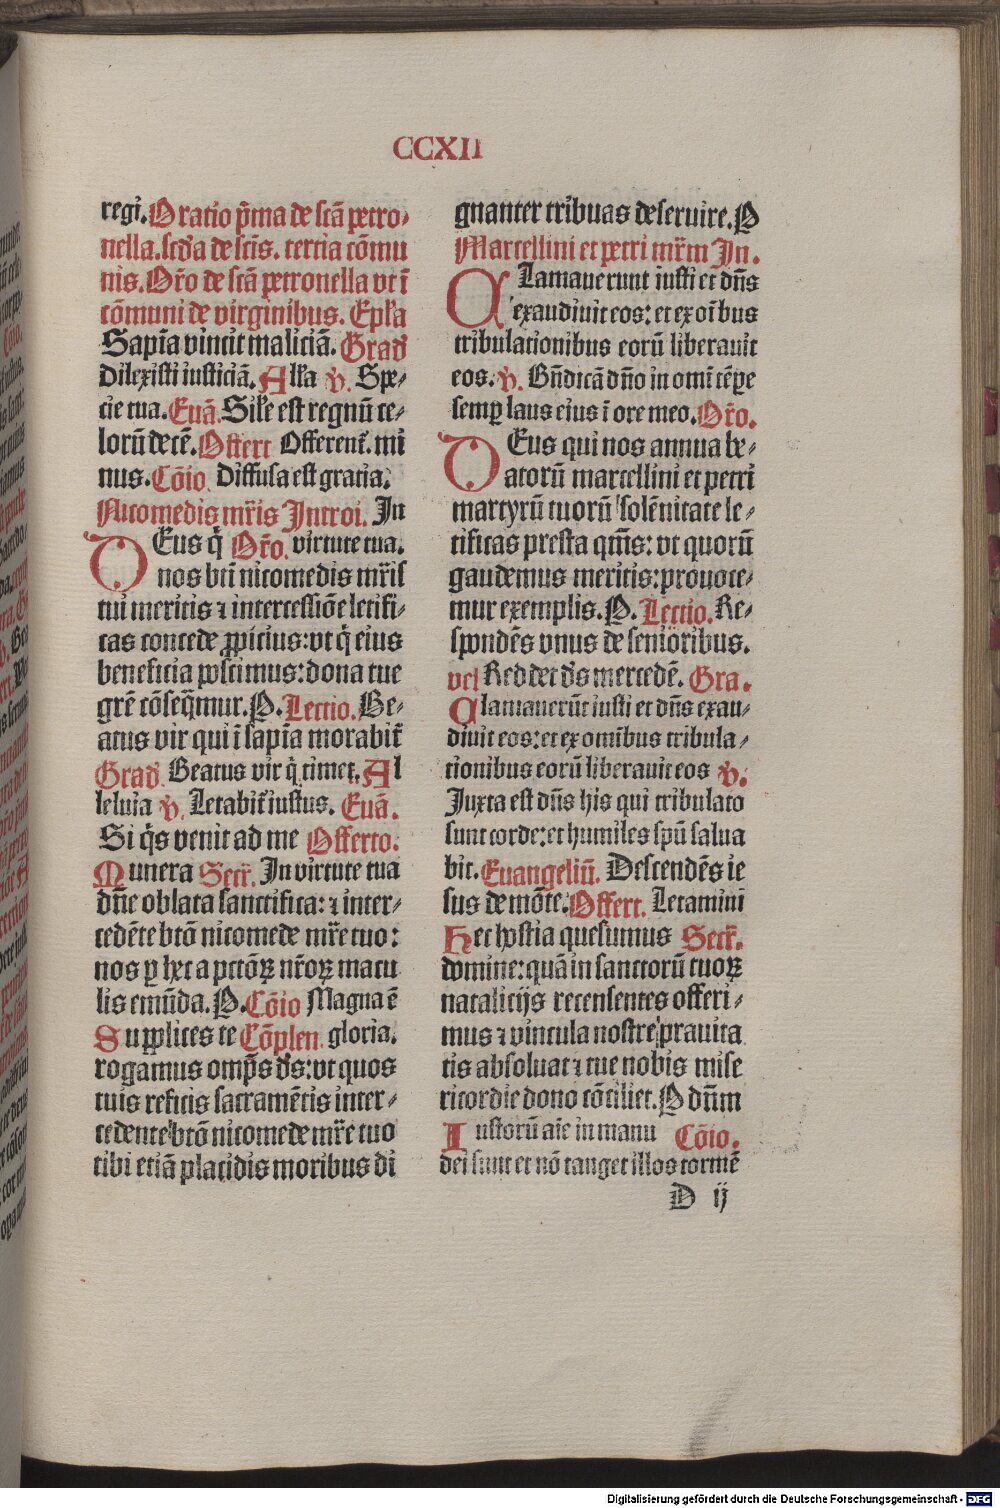 CCXII
regi. Oratio p̄ma de scā petro⸗
nella. scd̄a de scīs. tertia cōmu
nis. Or̄o de scā petronella vt ī
cōmuni de virginibus. Epl̄a
Sapīa vincit maliciā. Grad̄
Dilexisti iusticiā. All̄a v̄. Spe⸗
cie tua. Euā. Sil̄e est regnū ce⸗
lorū decē. Offert Offerent̄. mi
nus. Cōio Diffusa est gratia.
Nicomedis mr̄is Introi. In
DEus q̄ Or̄o. virtute tua.
nos bt̄i nicomedis mr̄is
tui meritis ⁊ intercessiōe letifi⸗
cas concede ꝓpicius: vt q̄ eius
beneficia poscimus: dona tue
grē cōseq̄mur. P. Lectio. Be⸗
atus vir qui ī sapīa morabit̄
Grad̄ Beatus vir q̄ timet. Al
leluia v̄. Letabit̄ iustus. Euā.
Si q̄s venit ad me Offerto.
Munera Secr̄. In virtute tua
dn̄e oblata sanctifica: ⁊ inter⸗
cedēte btō nicomede mr̄e tuo:
nos ꝑ hec a pctōꝝ nr̄oꝝ macu
lis emūda. P. Cōio Magna ē
Supplices te Cōplen gloria.
rogamus omp̄s ds̄: vt quos
tuis reficis sacramētis inter⸗
cedente btō nicomede mr̄e tuo
tibi etiā placidis moribus di
gnanter tribuas deseruire. P
Marcellini et petri mr̄m In.
CLamauerunt iusti et dn̄s
exaudiuit eos: et ex oībus
tribulationibus eorū liberauit
eos. v̄. Bn̄dicā dn̄o in omī tēpe
semp̱ laus eius ī ore meo. Or̄o.
DEus qui nos annua be⸗
atorū marcellini et petri
martyrū tuorū solēnitate le⸗
tificas presta qm̄s: vt quorū
gaudemus meritis: prouoce⸗
mur exemplis. P. Lectio. Re⸗
spondēs vnus de senioribus.
vel Reddet ds̄ mercedē. Gra.
Clamauerūt iusti et dn̄s exau⸗
diuit eos: et ex omībus tribula⸗
tionibus eorū liberauit eos v̄.
Juxta est dn̄s his qui tribulato
sunt corde: et humiles spū salua
bit. Euangeliū. Descendēs ie
sus de mōte. Offert. Letamini
Hec hostia quesumus Secr̄.
domine: quā in sanctorū tuoꝝ
natalicijs recensentes offeri⸗
mus ⁊ vincula nostre prauita
tis absoluat ⁊ tue nobis mise
ricordie dono cōciliet. P dn̄m
Iustorū aīe in manu Cōio.
dei sunt et nō tanget illos tormē
D ij
Digitalisierung gefördert durch die Deutsche Forschungsgemeinschaft - DFG